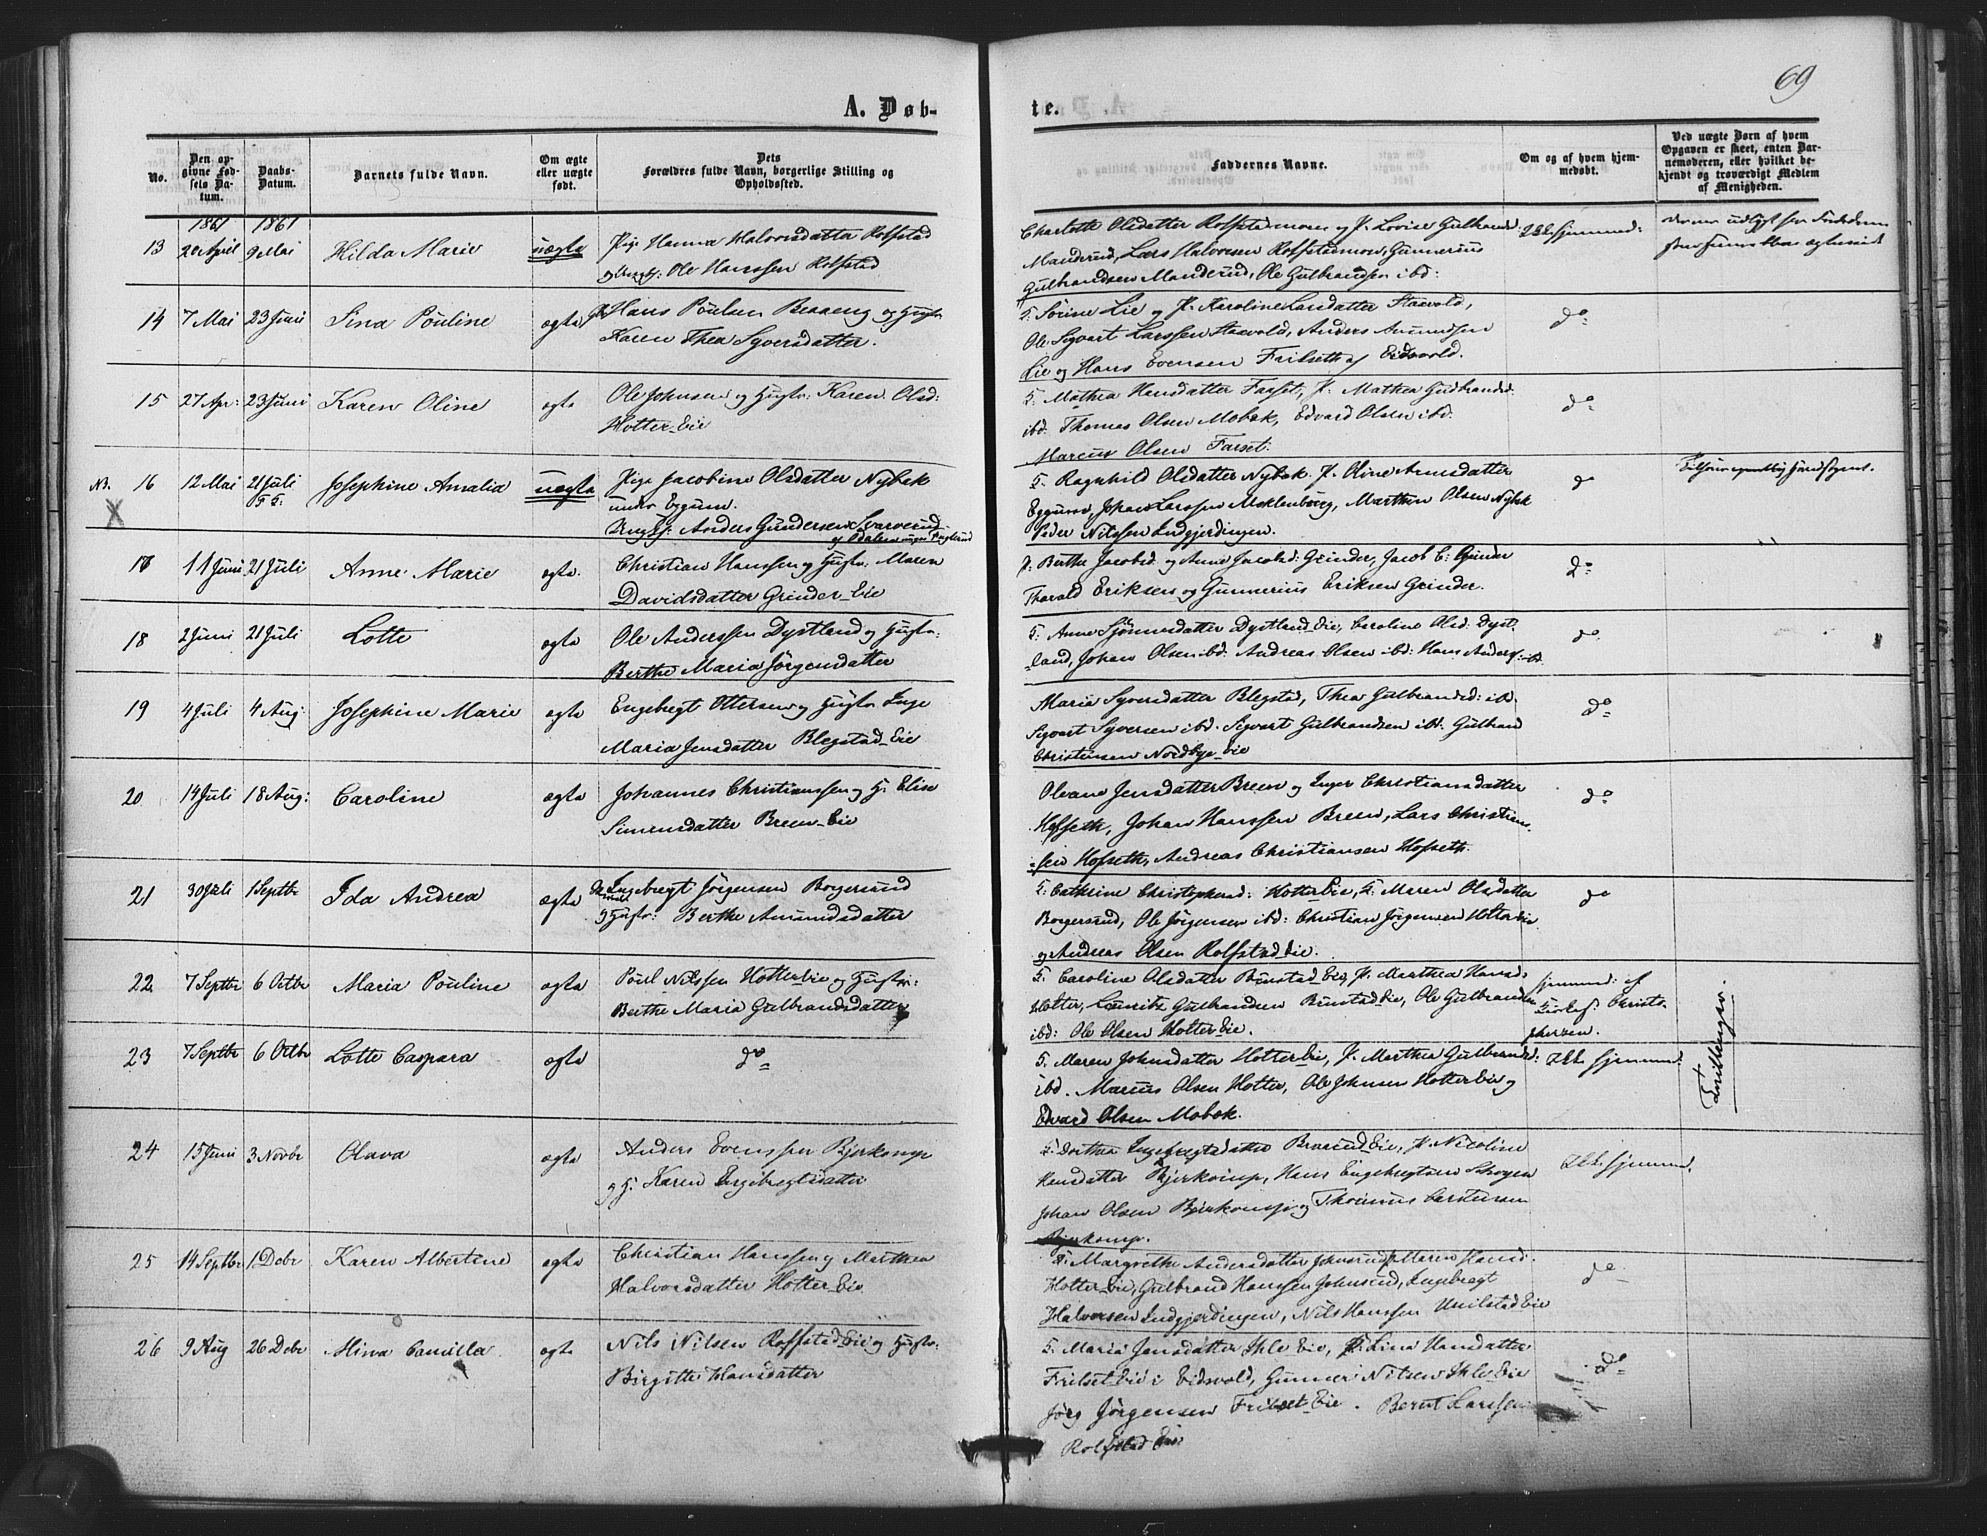 69
A. Døb-
te.
No.
Den op-
givne Fød-
sels Da-
tum.
Daabs-
Datum.
Barnets fulde Navn.
Om ægte
eller uægte
født.
Dets
Forældres fulde Navn, borgerlige Stilling og
Opholdssted.
Faddernes Navne.
Om og af hvem hjem-
medøbt.
Ved uægte Børn af hvem
Opgaven er skeet, enten Bar-
nemoderen, eller hvilket be-
kjendt og troværdigt Medlem
af Menigheden.
1861 1861
13 20 April 9 Mai Hilda Marie uægte Pige Hanna Halvorsdatter Rolfstad
og Ole Hanssen Rolfstad
Charlotte Olsdatter Rolfstadmoen og P. Lovise Gulbrandsd:
Manderud, Lars Halvorsen Rolfstadmoen, Gunnerius
Gulbrandsen Manderud, Ole Gulbrandsen ibd:
Ikke hjemmed:
14 7 Mai 23 Juni Lina Pouline ægte Hans Poulsen og Hustr.
Karen Thea Syversdatter.
F. Sörine Lie og P. Karoline Larsdatter Stasvold,
Ole Sigvart Larssen Stasvold, Anders Amundsen
Lie og Hans Evensen Frilseth af Eidsvold.
do
15 27 Apr: 23 Juni Karen Oline ægte Ole Johnsen og Hustr: Karen Olsd:
Hotter Eie
F. Mathea Hansdatter Farset, P. Mathea Gudbrandsd:
ibd. Thomas Olsen Mobæk, Edvard Olsen ibd.
Marcus Olsen Farset.
do
NB. 16 12 Mai 21 Juli Josephine Amalia uægte Pige Jacobine Olsdatter Nybak
under Eggum.
Ungkf: Anders Gundersen Svarverud
F. Ragnhild Olsdatter Nybak P. Oline Arnesdatter
Eggum, Johan Larssen Meklenborg, Marthin Olsen Nybak
Peder Nilssen Indgjerdingen.
do
17 11 Juni 21 Juli Anne Marie ægte. Christian Hanssen og Hustr: Maren
Davidsdatter Grinder Eie
P: Berthe Jacobsd: og Anne Jacobsd: Grinder, Jacob C: Grinder
Thorald Eriksen og Gunnerius Eriksen Grinder.
do
18 2 Juni 21 Juli Lotte ægte Ole Anderssen Dystland og Hustr:
Berthe Maria Jörgensdatter
F: Anne Sjönnesdatter Dystland Eie, Caroline Olsd: Dyst-
land, Johan Olsen ibd: Andreas Olsen ibd: Hans Anders: ibd.
do
19 4 Juli 4 Aug: Josephine Marie ægte Engebregt Ottersen og Hustr. Inge
Maria Jensdatter Blegstad Eie
Maria Syversdatter Blegstad, Thea Gulbrandsd: ibd.
Sigvart Syversen ibd: Sigvart Gulbrandsen ibd. Gulbrand
Christensen Nordbye Eie
do
20 14 Juli 18 Aug: Caroline ægte Johannes Christianssen og H: Elise
Simensdatter Breen Eie
Oleane Jensdatter Breen og Inger Christiansdatter
Hofseth, Johan Hanssen Breen, Lars Christian-
sen Hofseth, Andreas Christiansen Hofseth.
do
21 30 Juli 1 Septbr Ida Andrea ægte Ingebregt Jörgensen Bogersrud
Hustr: Berthe Amundsdatter
F: Cathrine Christophersd: Hotter Eie, F: Maren Olsdatter
Bogersrud, Ole Jörgensen ibd: Christian Jörgensen Hotter Eie
og Andreas Olsen Rolfstad Eie.
do
22 7 Septbr 6 Octbr Maria Pouline ægte Poul Nilssen Hotter Eie og Hustr:
Berthe Maria Gulbrandsdatter
F. Caroline Olsdatter Bunstad Eie, P. Marthea Hansd:
Hotter, Lauritz Gulbrandsen Bunstad Eie, Ole Gulbrandsen
ibd: Ole Olsen Hotter Eie.
hjemmed: af
Christo-
phersen.
23 7 Septbr 6 Octbr Lotte Caspara ægte do
F. Maren Johnsdatter Hotter Eie, P. Marthea Gulbrandsd:
ibd. Marcus Olsen Hotter, Ole Johnsen Hotter Eie og
Edvard Olsen Mobæk.
Ikke hjemmed.
Tvillinger.
24 15 Juni 3 Novbr Olava ægte Anders Evenssen Bjerkomp
og H. Karen Engebregtsdatter
F: Dorthea Ingebregtsdatter Braarud Eie, P. Nicoline
Hansdatter Bjerkomp, Hans Engebregtsen Skogen
Johan Olsen Bjerkomp og Thomas Carstensen
Bjerkomp.
Ikke hjemmed.
25 14 Septbr 1 Decbr Karen Albertine ægte Christian Hanssen og Marthea
Halvorsdatter Hotter Eie
F. Margrethe Andersdatter Johnsrud, P. Maren Hansd.
Hotter Eie, Gulbrand Hanssen Johnsrud, Ingebregt
Halvorsen Indgjerdingen, Nils Hanssen Unilstad Eie
do
26 9 Aug 26 Decbr Mina Camilla ægte Nils Nilsen Rolfstad Eie og Hustr:
Birgitte Hansdatter
F. Maria Jensdatter Ihle Eie, P. Lina Hansdatter
Frilset Eie i Eidsvold, Gunner Nilsen Ihle Eie
Jörg Jörgensen Frilset Eie. Bernt Larssen
Rolfstad Eie
do